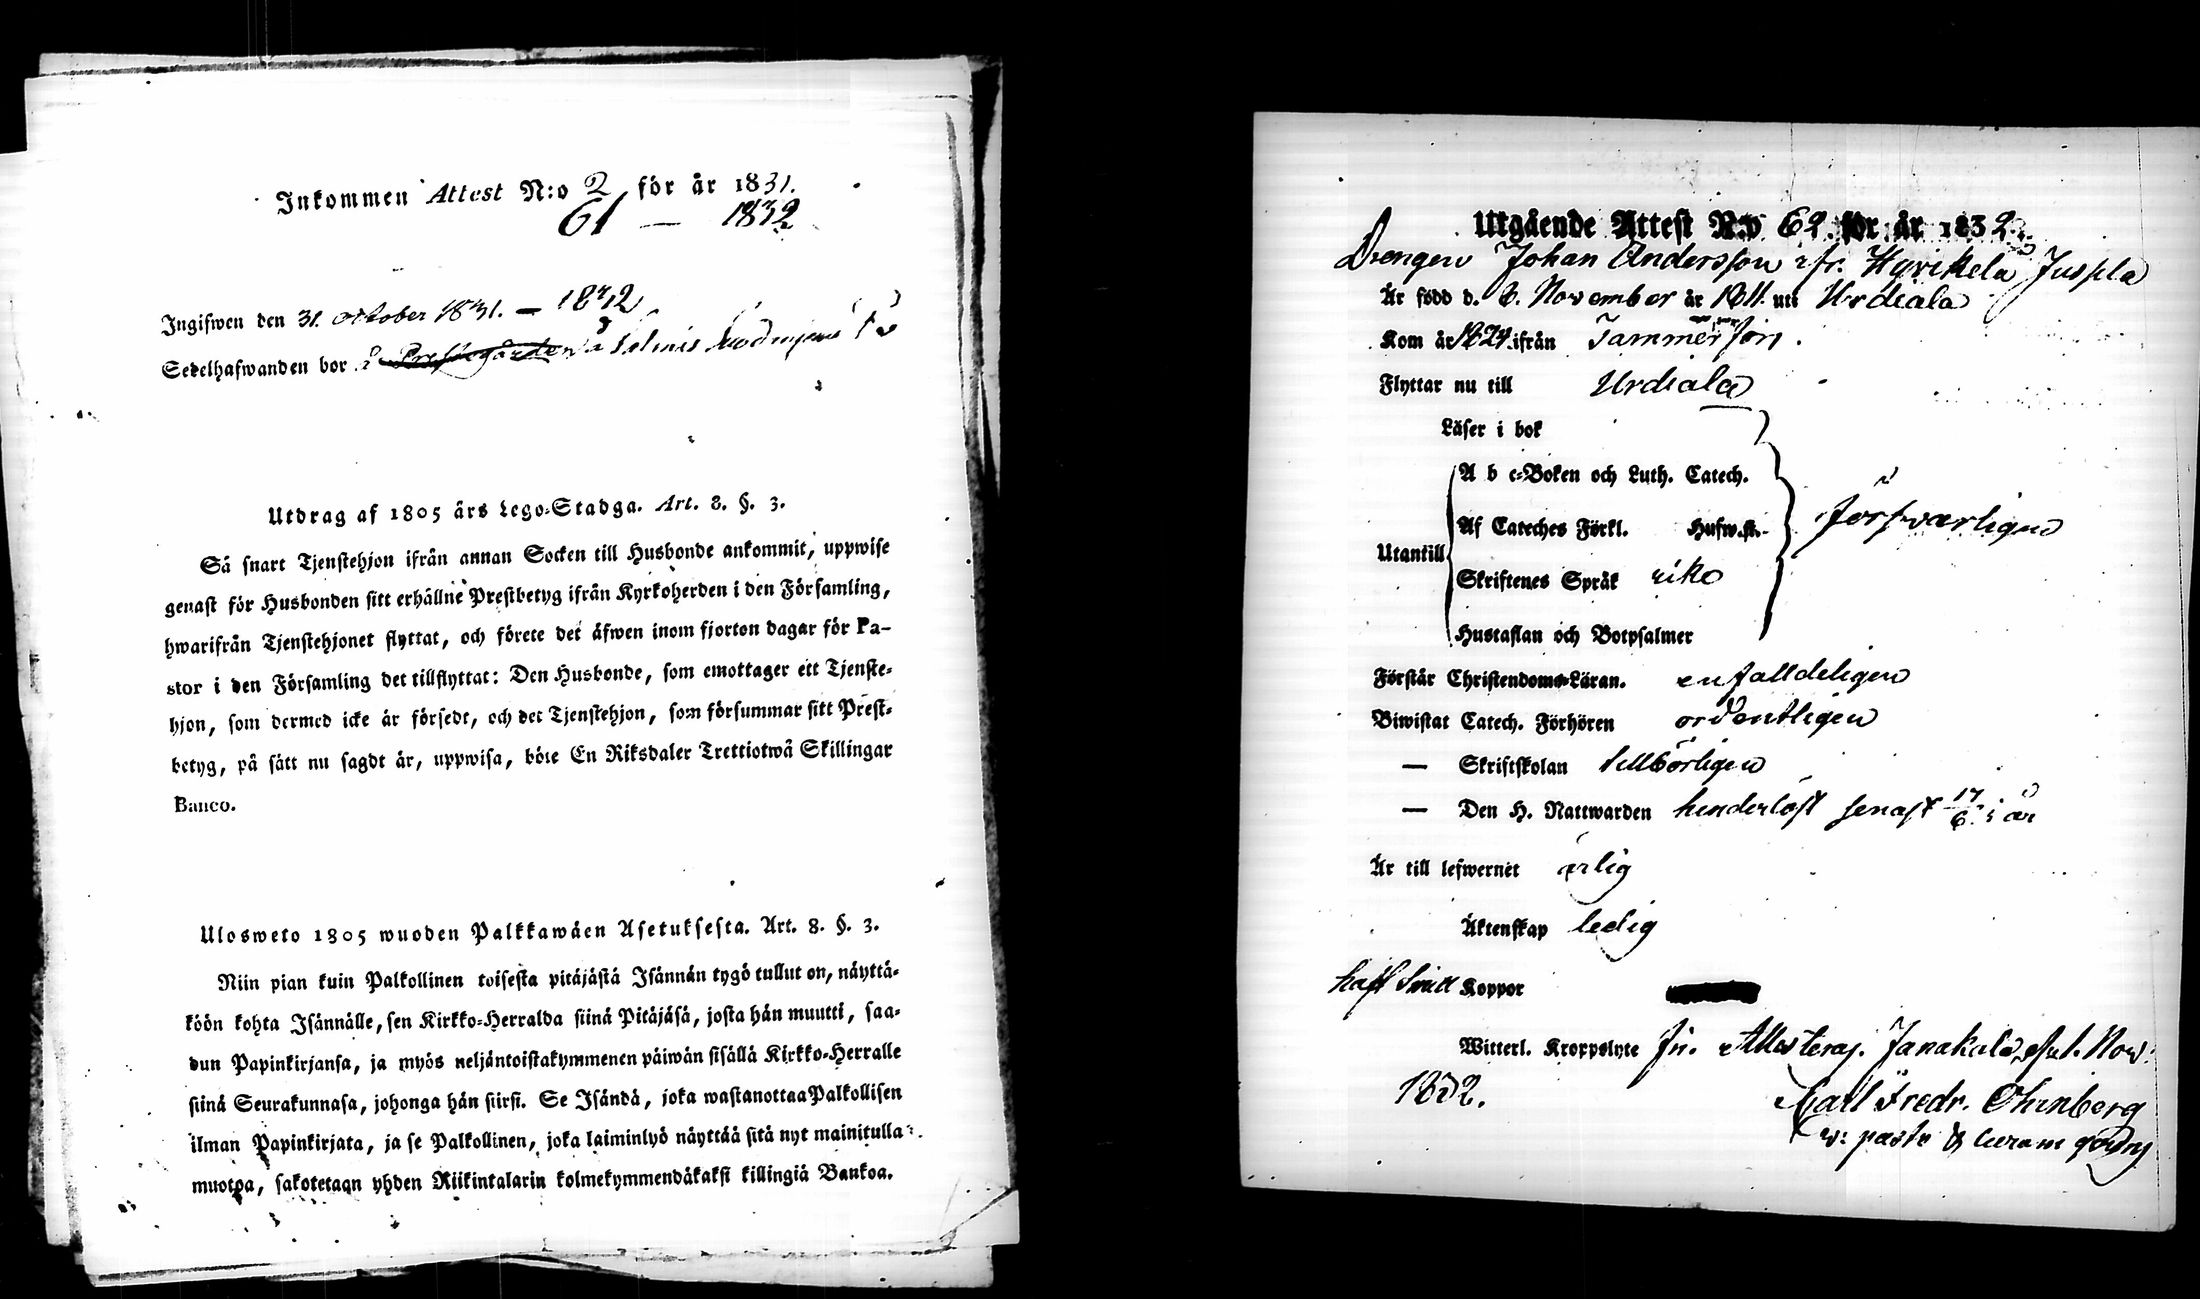 Inkommen Attest N:o 2 för år 1831.
61 — 1832
Ingifwen den 31 october 1831. — 1832
Sedelhafwanden bor å Prestegården å
Utdrag af 1805 års Lego-Stadga. Art. 8. §. 3.
Så snart Tjenstehjon ifrån annan Socken till Husbonde ankommit, uppwise
genast för Husbonden sitt erhållne Prestbetyg ifrån Kyrkoherden i den Församling,
hwarifrån Tjenstehjonet flyttat, och förete det äfwen inom fjorton dagar för Pa-
stor i den Församling det tillflyttat: Den Husbonde, som emottager ett Tjenste-
hjon, som dermed icke är försedt, och det Tjenstehjon, som försummar sitt Prest-
betyg, på sätt nu sagdt är, uppwisa, böte En Riksdaler Trettiotwå Skillingar
Banco.
Ulosweto 1805 wuoden Palkkawäen Asetuksesta. Art. 8. §. 3.
Niin pian kuin Palkollinen toisesta pitäjästä Isännän tygö tullut on, näyttä-
köön kohta Isännälle, sen Kirkko-Herralda siinä Pitäjäsä, josta hän muutti, saa-
dun Papinkirjansa, ja myös neljäntoistakymmenen päiwän sisällä Kirkko-Herralle
siinä Seurakunnasa, johonga hän siirsi. Se Isändä, joka wastanottaa Palkollisen
ilman Papinkirjata, ja se Palkollinen, joka laiminlyö näyttää sitä nyt mainitulla
muotoa, sakotetaan yhden Riikintalarin kolmekymmendäkaksi killingiä Bankoa.
Utgående Attest N:o 62 för år 1832.
Drengen Johan Andersson fr. Hyvikelä Juspla
Är född d. 6. November år 1811. uti Urdiala
Kom år 1824 ifrån Tammerfors.
Flyttar nu till Urdiala
Läser i bok
A b c-Boken och Luth. Catech.
Af Cateches Förkl. Hufw.st. försvarligen
Utantill
Skriftenes Språk
Hustaflan och Botpsalmer
Förstår Christendoms-Läran. enfalldeligen
Biwistat Catech. Förhören ordentligen
— Skriftskolan tillbörligen
— Den H. Nattwarden hinderlöst senast 17/6 i år
Är till lefwernet ärlig
Äktenskap ledig
haft Koppor
Witterl. Kroppslyte fri. Attesteras. Janakala, d. 1. Nov.
1832.
Carl Fredr. Ohenberg